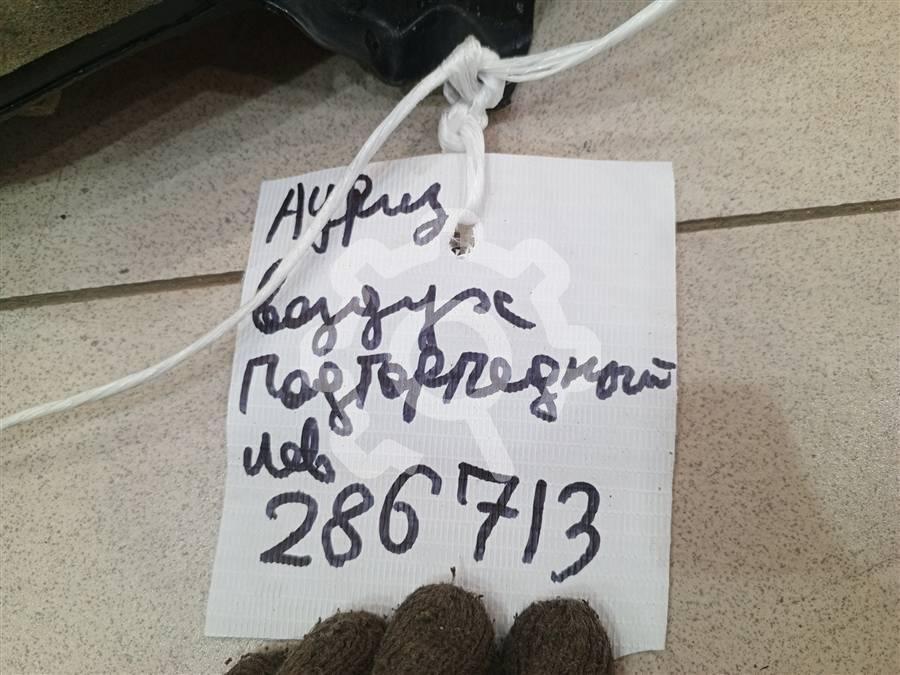 Аурис
воздух
подторпедный
лев
286713